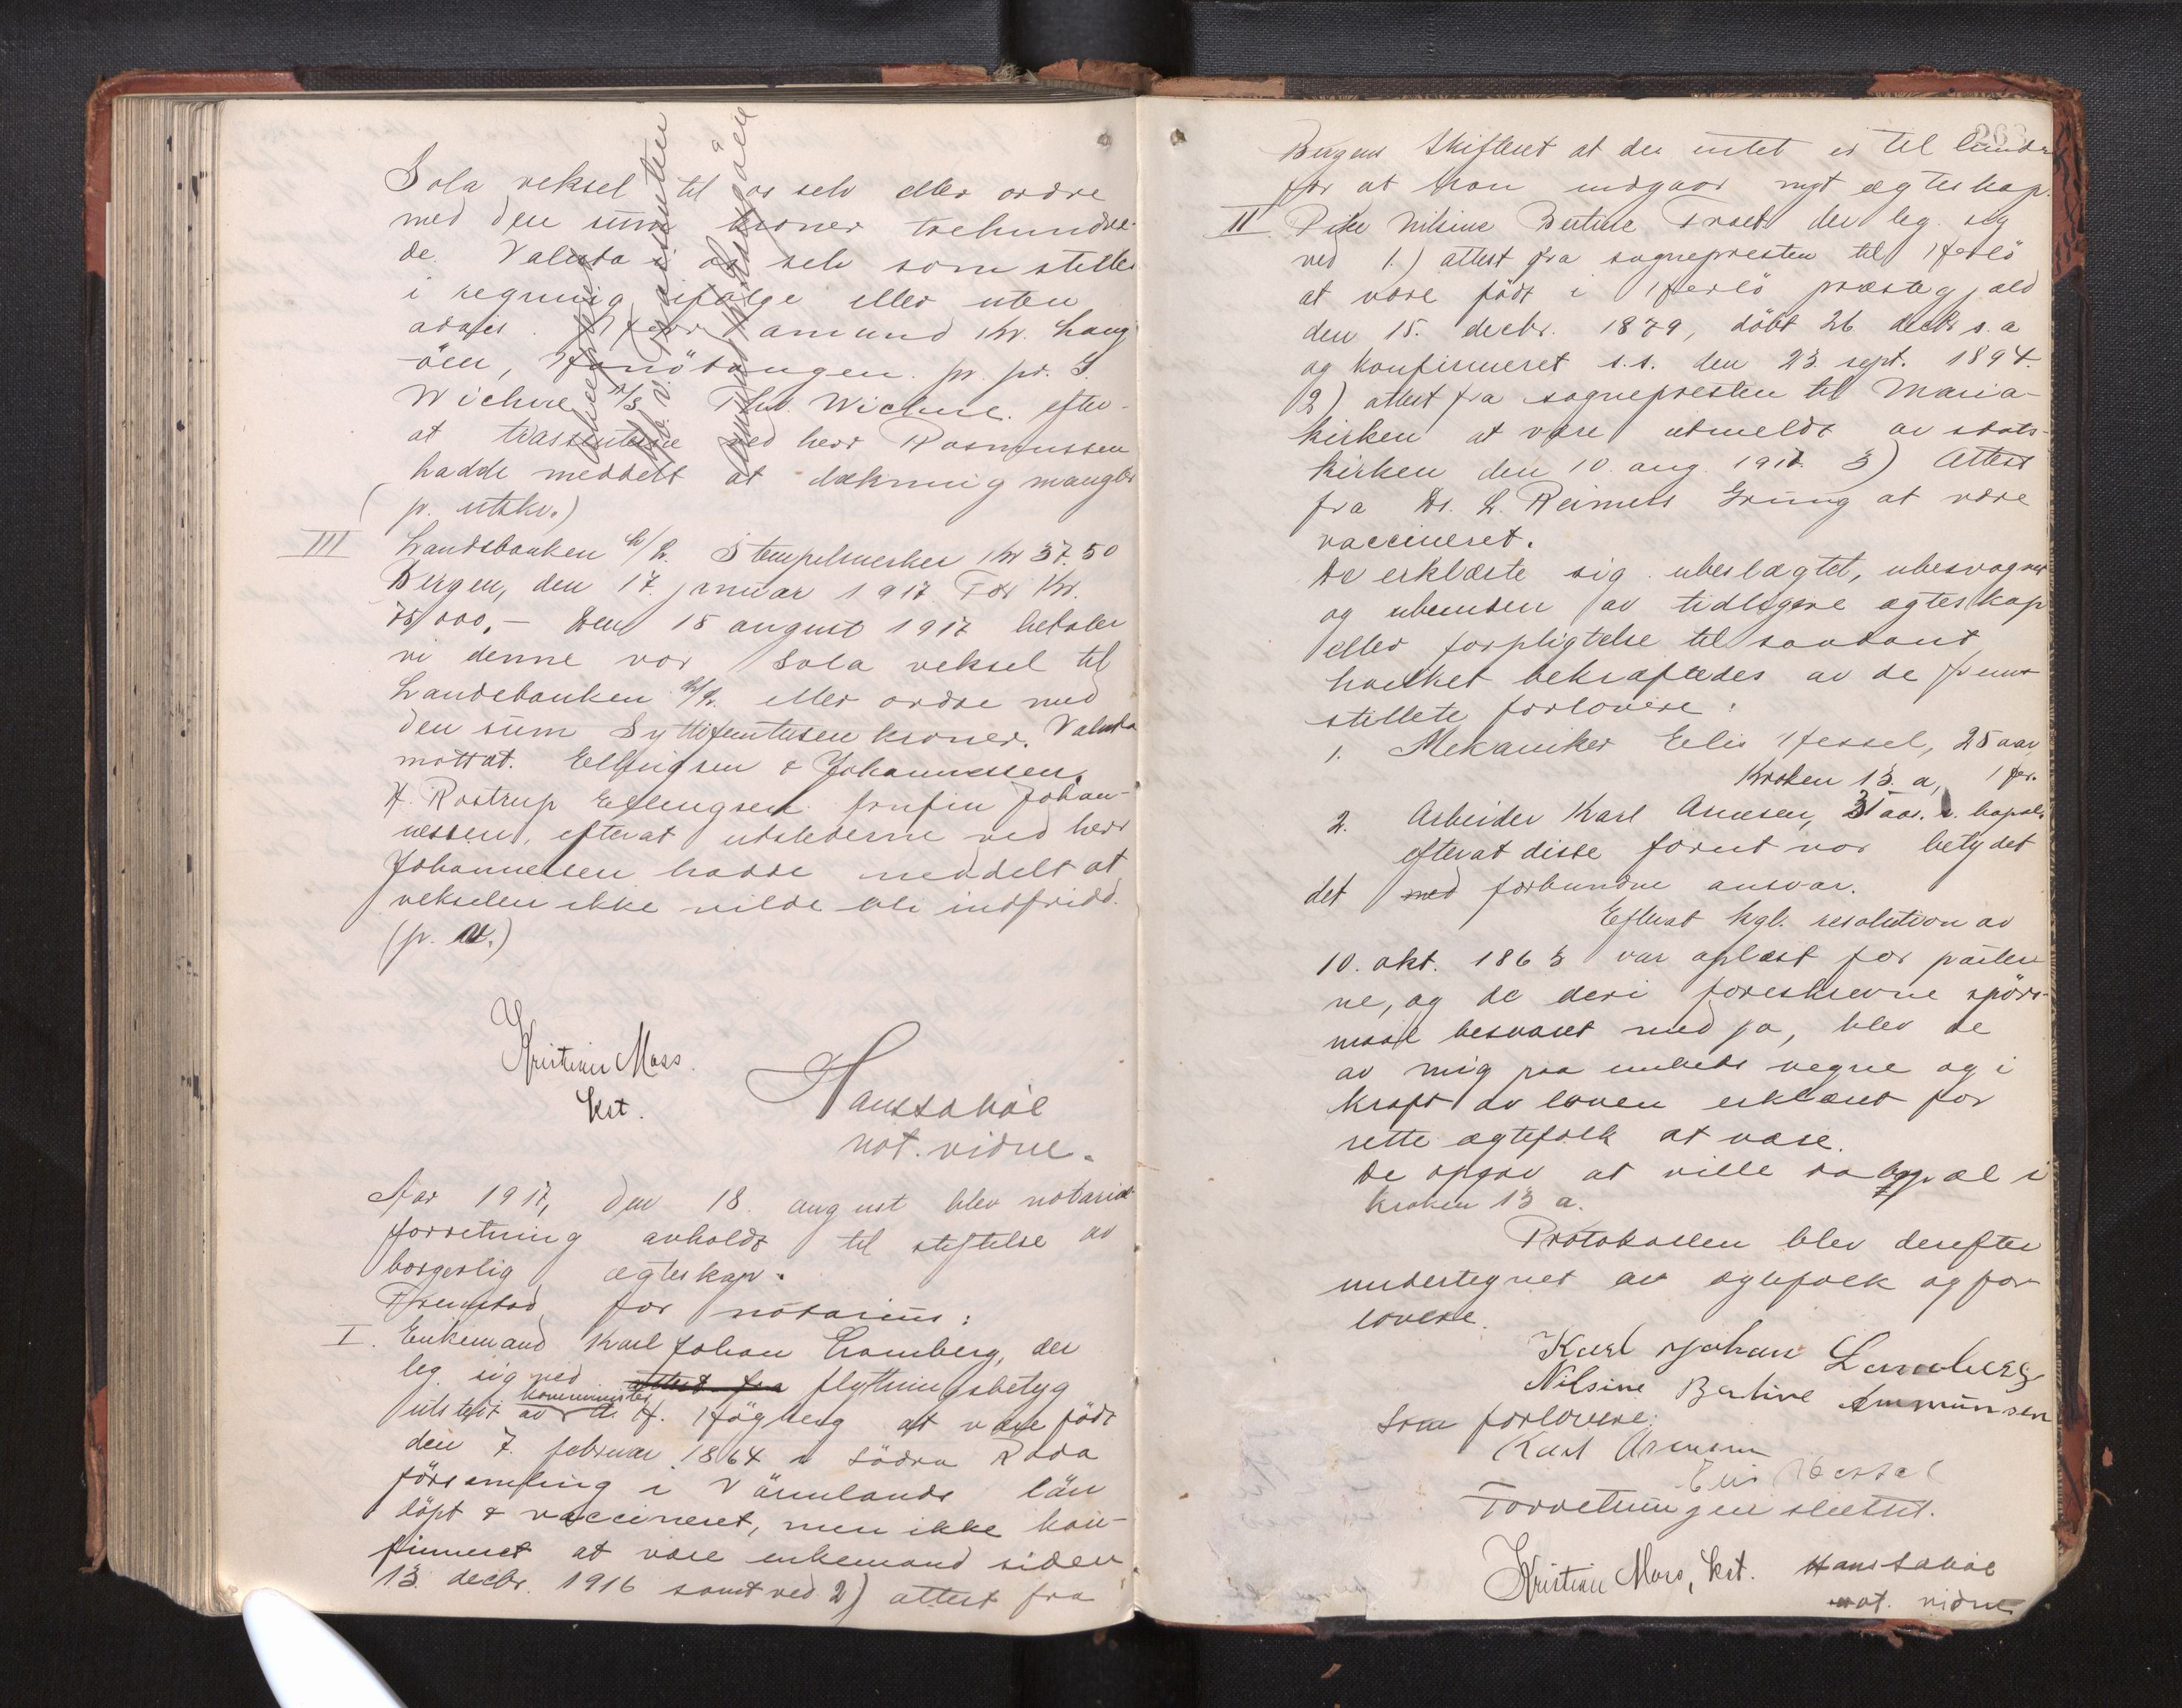 Sola veksel til os selv eller ordre
med den sum kroner trehundre-
de. Valuta i os selv som stilles
i regning ifølge eller uten
advis. Herr Amund Kr. Haug
öen, Hanötangen. pr. pr. I.
Wichne A/S Thv. Wichne. efter-
at trassenterne ved herr Rasmussen
hadde meddelt at dækning mangler
(p. utkv.)
III Landsbanken A/S. Stempelmerker Kr 37.50
Bergen, den 17. januar 1917. For Kr.
75,000,- Den 15 august 1917 betaler
vi denne vor Sola veksel til
Landsbanken A/S. eller ordre med
den sum Syttifemtusen kroner. Valuta
mottat. Ellingsen & Johannessen.
H. Rostrup Ellingsen. Johan-
nessen, efterat utstederne ved herr
Johannessen hadde meddelt at
vekselen ikke vilde bli indfridd.
(p. u.)
Kristian Moss.
kst.
Hans
not. vidne.
Aar 1917, den 18. august blev notarial
forretning avholdt til stiftelse av
borgerlig ægteskap.
Fremstod for notarius:
I. Enkemand Karl Johan Lramberg, der
leg. sig ved attest fra flytningsbetyg
utstedt av kommunister H. Högberg at være födt
den 7. februar 1864 i Södra Råda
församling i Värmlands län
döpt & vaccineret, men ikke kon-
firmeret at være enkemand siden
13. decbr. 1916 samt ved 2) attest fra
263
Bergens Skifteret at der intet er til hinder
for at han indgaar nyt ægteskap.
II. Pike Nilsine Bertine Troet der leg. sig
ved 1.) attest fra sognepresten til Herlö
at være födt i Herlö præstegjæld
den 15. decbr. 1879, döbt 26 decbr s.a
og konfirmeret s.s. den 23. sept. 1894.
2) attest fra sognepresten til Maria-
kirken at være utmeldt av stats-
kirken den 10. aug. 1917. 3) Attest
fra Dr. L. Reimers Grung at være
vaccineret.
De erklærte sig ubeslægtet, ubesvogret
og ubunden av tidligere ægteskap
eller forpligtelse til saadant
hvilket bekræftedes av de frem-
stillete forlovere:
1. Mekaniker Elis Hessel, 25 aar
Kroken 13 a, her.
2. Arbeider Karl Arnesen, 31 aar. s. bopæl.
efterat disse forut var betydet
det med forbundne ansvar.
Efterat kgl. resolution av
10. okt. 1863 var oplæst for parter-
ne, og de deri foreskrevne spörs-
maal besvaret med ja, blev de
av mig paa embeds vegne og i
kraft av loven erklæret for
rette ægtefolk at være.
De opgav at ville ta bopæl i
Kroken 13 a.
Protokollen blev derefter
undertegnet av ægtefolk og for-
lovere.
Karl Johan Lramberg
Nilsine Bertine Ammunsen
Som forlovere:
Karl Arnesen
Elis Hessel
Forretningen sluttet.
Kristian Moss, kst. Hans
not. vidne